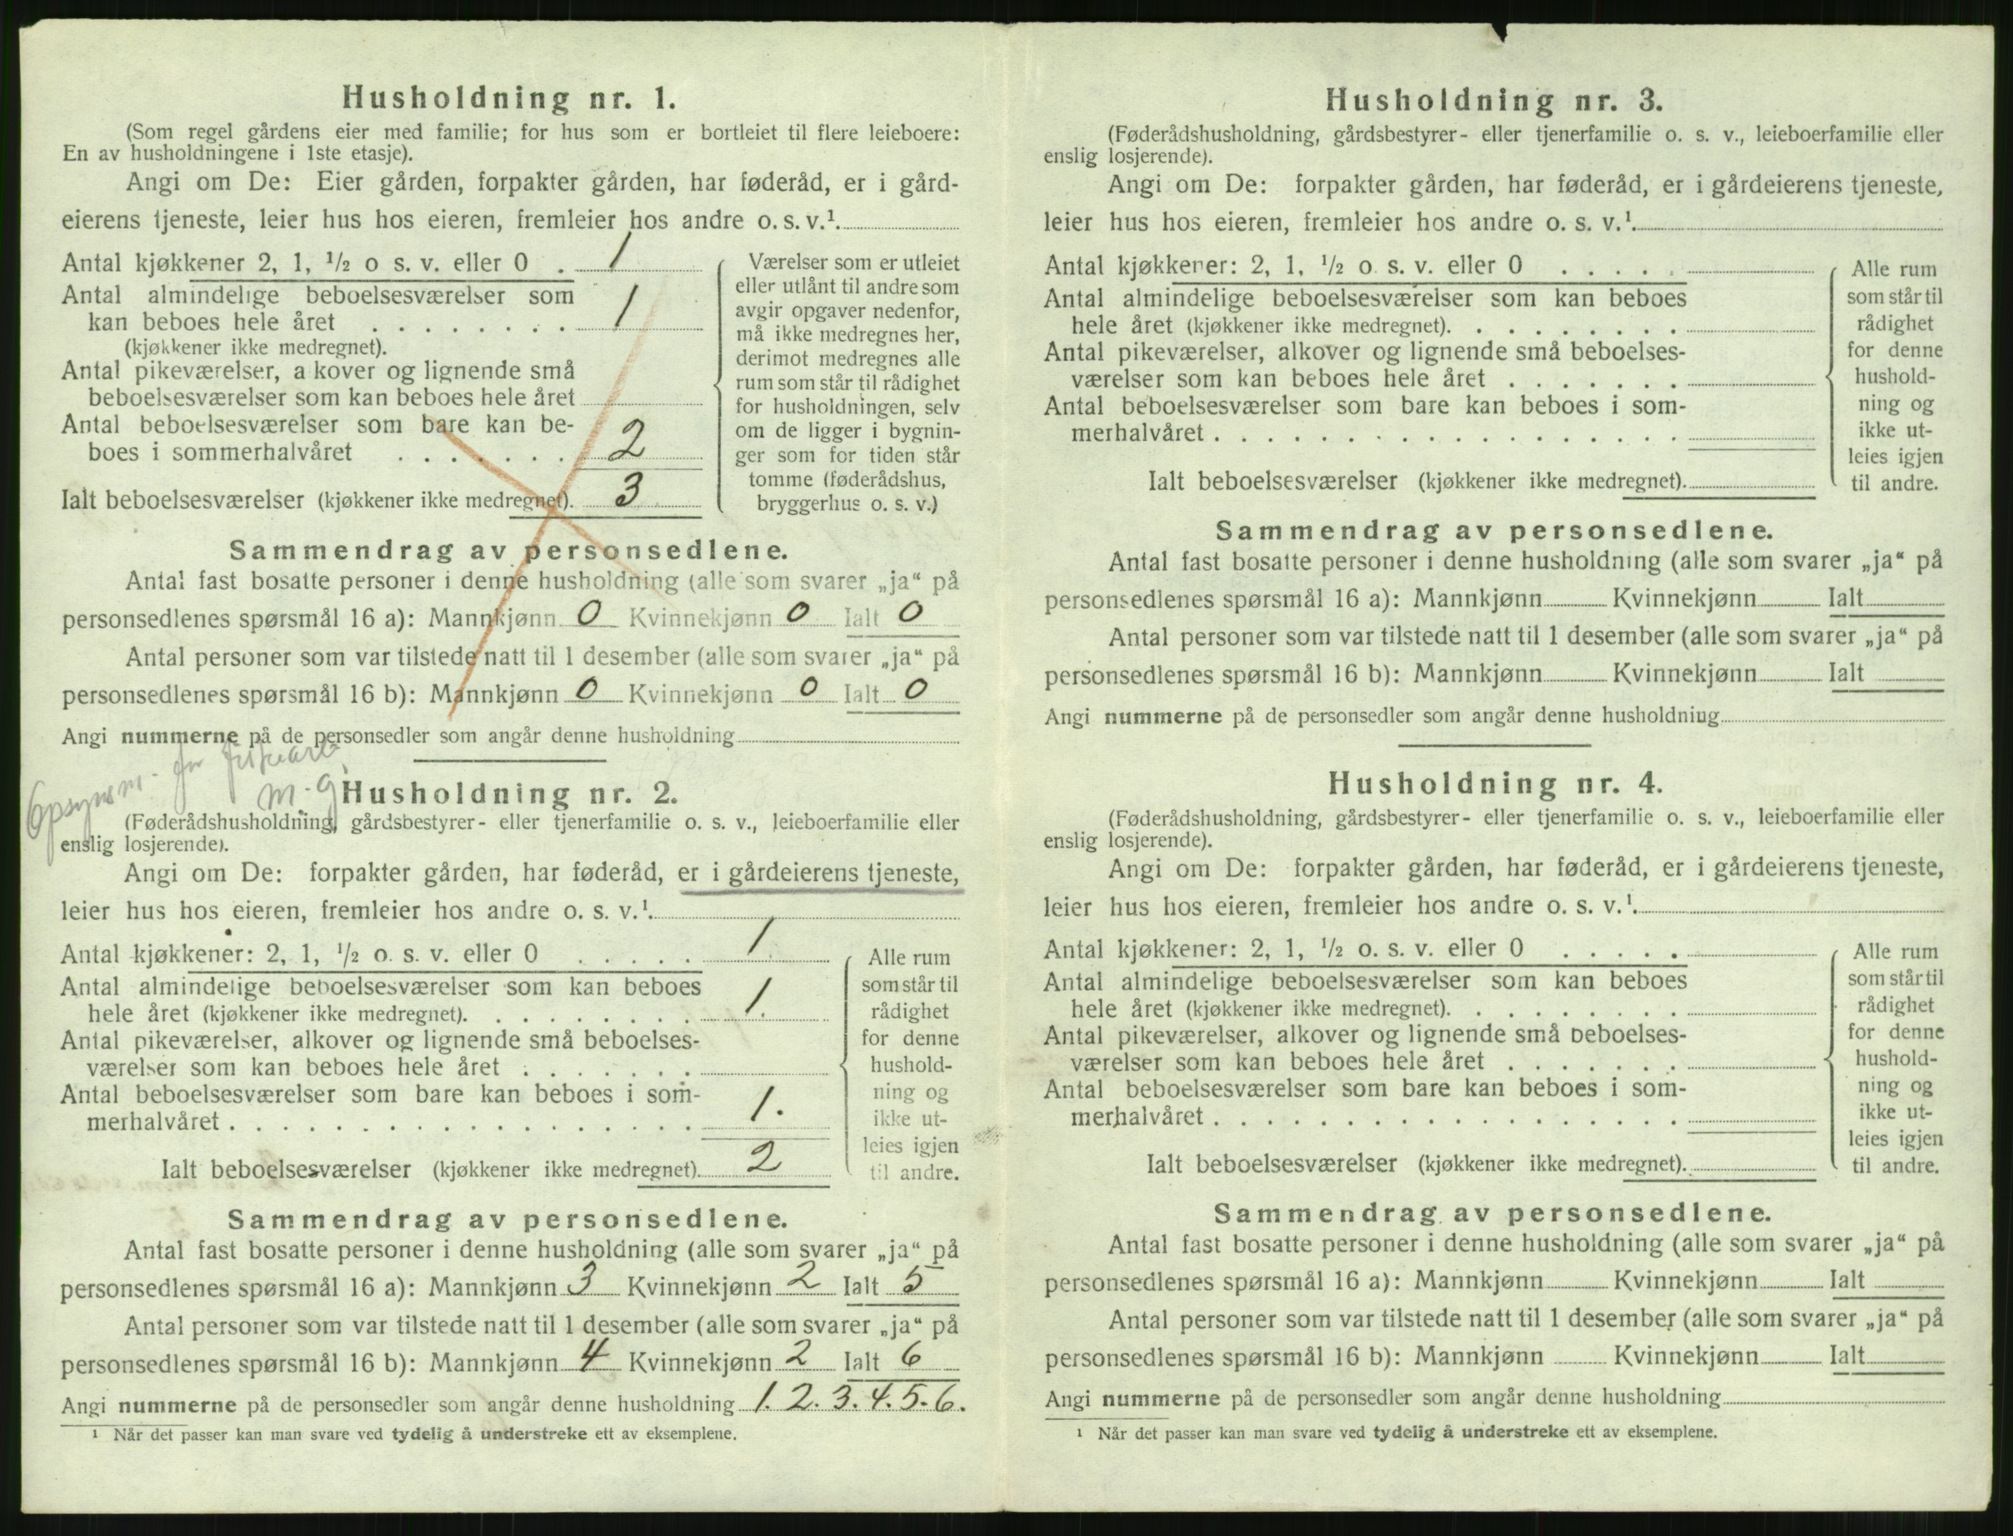 Husholdning nr. 1.
(Som regel gårdens eier med familie; for hus som er bortleiet til flere leieboere:
En av husholdningene i 1ste etasje).
Angi om De: Eier gården, forpakter gården, har føderåd, er i gård-
eierens tjeneste, leier hus hos eieren, fremleier hos andre o. s. v.¹
Antal kjøkkener 2, 1, ½ o s. v. eller 0 . 1
Antal almindelige beboelsesværelser som
kan beboes hele året . . . . . . . . 1
(kjøkkener ikke medregnet).
Antal pikeværelser, a kover og lignende små
beboelsesværelser som kan beboes hele året
Antal beboelsesværelser som bare kan be-
boes i sommerhalvåret . . . . . . . 2
Ialt beboelsesværelser (kjøkkener ikke medregnet). 3
Værelser som er utleiet
eller utlånt til andre som
avgir opgaver nedenfor,
må ikke medregnes her,
derimot medregnes alle
rum som står til rådighet
for husholdningen, selv
om de ligger i bygnin-
ger som for tiden står
tomme (føderådshus,
bryggerhus o. s. v.)
Sammendrag av personsedlene.
Antal fast bosatte personer i denne husholdning (alle som svarer „ja“ på
personsedlenes spørsmål 16 a): Mannkjønn 0 Kvinnekjønn 0 Ialt 0
Antal personer som var tilstede natt til 1 desember (alle som svarer „ja“ på
personsedlenes spørsmål 16 b): Mannkjønn 0 Kvinnekjønn 0 Ialt 0
Angi nummerne på de personsedler som angår denne husholdning
m. g.
Husholdning nr. 2.
(Føderådshusholdning, gårdsbestyrer- eller tjenerfamilie o. s. v., leieboerfamilie eller
enslig losjerende).
Angi om De: forpakter gården, har føderåd, er i gårdeierens tjeneste,
leier hus hos eieren, fremleier hos andre o. s. v.¹
Antal kjøkkener: 2, 1, ½ o. s. v. eller 0 . . . . . 1
Antal almindelige beboelsesværelser som kan beboes
hele året (kjøkkener ikke medregnet). . . . . . . . . 1.
Antal pikeværelser, alkover og lignende små beboelses-
værelser som kan beboes hele året . . . . . . .
Antal beboelsesværelser som bare kan beboes i som-
merhalvåret . . . . . . . . . . . . . . . . . . 1.
Ialt beboelsesværelser (kjøkkener ikke medregnet). 2
Alle rum
som står til
rådighet
for denne
hushold-
ning og
ikke ut-
leies igjen
til andre.
Sammendrag av personsedlene.
Antal fast bosatte personer i denne husholdning (alle som svarer „ja“ på
personsedlenes spørsmål 16 a): Mannkjønn 3 Kvinnekjønn 2 Ialt 5
Antal personer som var tilstede natt til 1 desember (alle som svarer „ja“ på
personsedlenes spørsmål 16 b): Mannkjønn 4 Kvinnekjønn 2 Ialt 6
Angi nummerne på de personsedler som angår denne husholdning 1. 2. 3. 4. 5. 6.
¹ Når det passer kan man svare ved tydelig å understreke ett av eksemplene.
Husholdning nr. 3.
(Føderådshusholdning, gårdsbestyrer- eller tjenerfamilie o. s. v., leieboerfamilie eller
enslig losjerende).
Angi om De: forpakter gården, har føderåd, er i gårdeierens tjeneste,
leier hus hos eieren, fremleier hos andre o. s. v.¹
Antal kjøkkener: 2, 1, ½ o. s. v. eller 0 . . . . .
Antal almindelige beboelsesværelser som kan beboes
hele året (kjøkkener ikke medregnet). . . . . . . . .
Antal pikeværelser, alkover og lignende små beboelses-
værelser som kan beboes hele året . . . . . . .
Antal beboelsesværelser som bare kan beboes i som-
merhalvåret . . . . . . . . . . . . . . . . . .
Ialt beboelsesværelser (kjøkkener ikke medregnet).
Alle rum
som står til
rådighet
for denne
hushold-
ning og
ikke ut-
leies igjen
til andre.
Sammendrag av personsedlene.
Antal fast bosatte personer i denne husholdning (alle som svarer „ja“ på
personsedlenes spørsmål 16 a): Mannkjønn Kvinnekjønn Ialt
Antal personer som var tilstede natt til 1 desember (alle som svarer „ja“ på
personsedlenes spørsmål 16 b): Mannkjønn Kvinnekjønn Ialt
Angi nummerne på de personsedler som angår denne husholdning
Husholdning nr. 4.
(Føderådshusholdning, gårdsbestyrer- eller tjenerfamilie o. s. v., leieboerfamilie eller
enslig losjerende).
Angi om De: forpakter gården, har føderåd, er i gårdeierens tjeneste,
leier hus hos eieren, fremleier hos andre o. s. v.¹
Antal kjøkkener: 2, 1, ½ o. s. v. eller 0 . . . . .
Antal almindelige beboelsesværelser som kan beboes
hele året (kjøkkener ikke medregnet). . . . . . . . .
Antal pikeværelser, alkover og lignende små beboelses-
værelser som kan beboes hele året . . . . . . .
Antal beboelsesværelser som bare kan beboes i som-
merhalvåret . . . . . . . . . . . . . . . . . .
Ialt beboelsesværelser (kjøkkener ikke medregnet).
Alle rum
som står til
rådighet
for denne
hushold-
ning og
ikke ut-
leies igjen
til andre.
Sammendrag av personsedlene.
Antal fast bosatte personer i denne husholdning (alle som svarer „ja“ på
personsedlenes spørsmål 16 a): Mannkjønn Kvinnekjønn Ialt
Antal personer som var tilstede natt til 1 desember (alle som svarer „ja“ på
personsedlenes spørsmål 16 b): Mannkjønn Kvinnekjønn Ialt
Angi nummerne på de personsedler som angår denne husholdning
¹ Når det passer kan man svare ved tydelig å understreke ett av eksemplene.